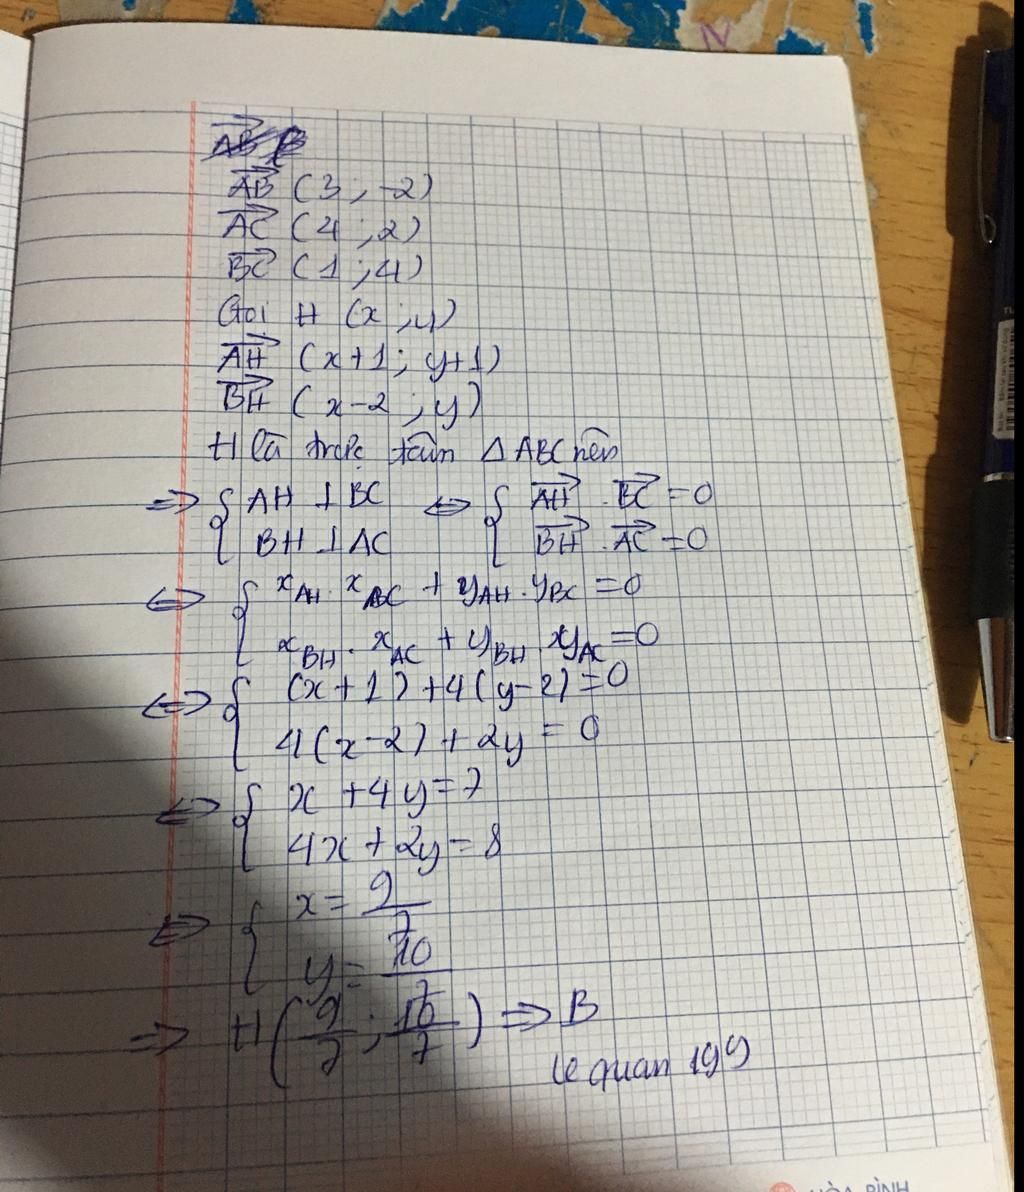 AB B
AB (3 ; -2)
AC (4 ; 2)
BC (1 ; 4)
Gọi H (x ; y)
AH (x+1 ; y+1)
BH (x-2 ; y)
H là trực tâm △ABC nên
=> { AH ⊥ BC <=> { AH . BC = 0
BH ⊥ AC BH . AC = 0
<=> { xAH . xBC + yAH . yBC = 0
xBH . xAC + yBH . xyAC = 0
<=> { (x+1) + 4(y-2) = 0
4(x-2) + 2y = 0
<=> { x + 4y = 7
4x + 2y = 8
<=> { x = 9/7
y = 10/7
=> H (9/7 ; 10/7) => B
le quan 199
HÒA BÌNH